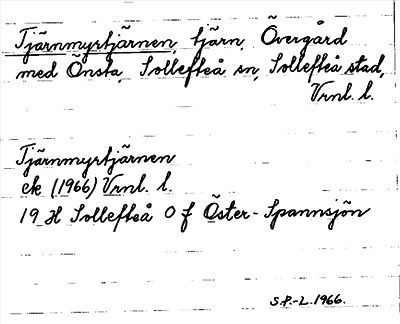 Tjärnmyrtjärnen, tjärn, Övergård
med Önsta, Sollefteå sn, Sollefteå stad,
Vrnl. l.
Tjärnmyrtjärnen
ek (1966) Vrnl. l.
19 H Sollefteå 0 f Öster-Spannsjön
S.P.-L. 1966.